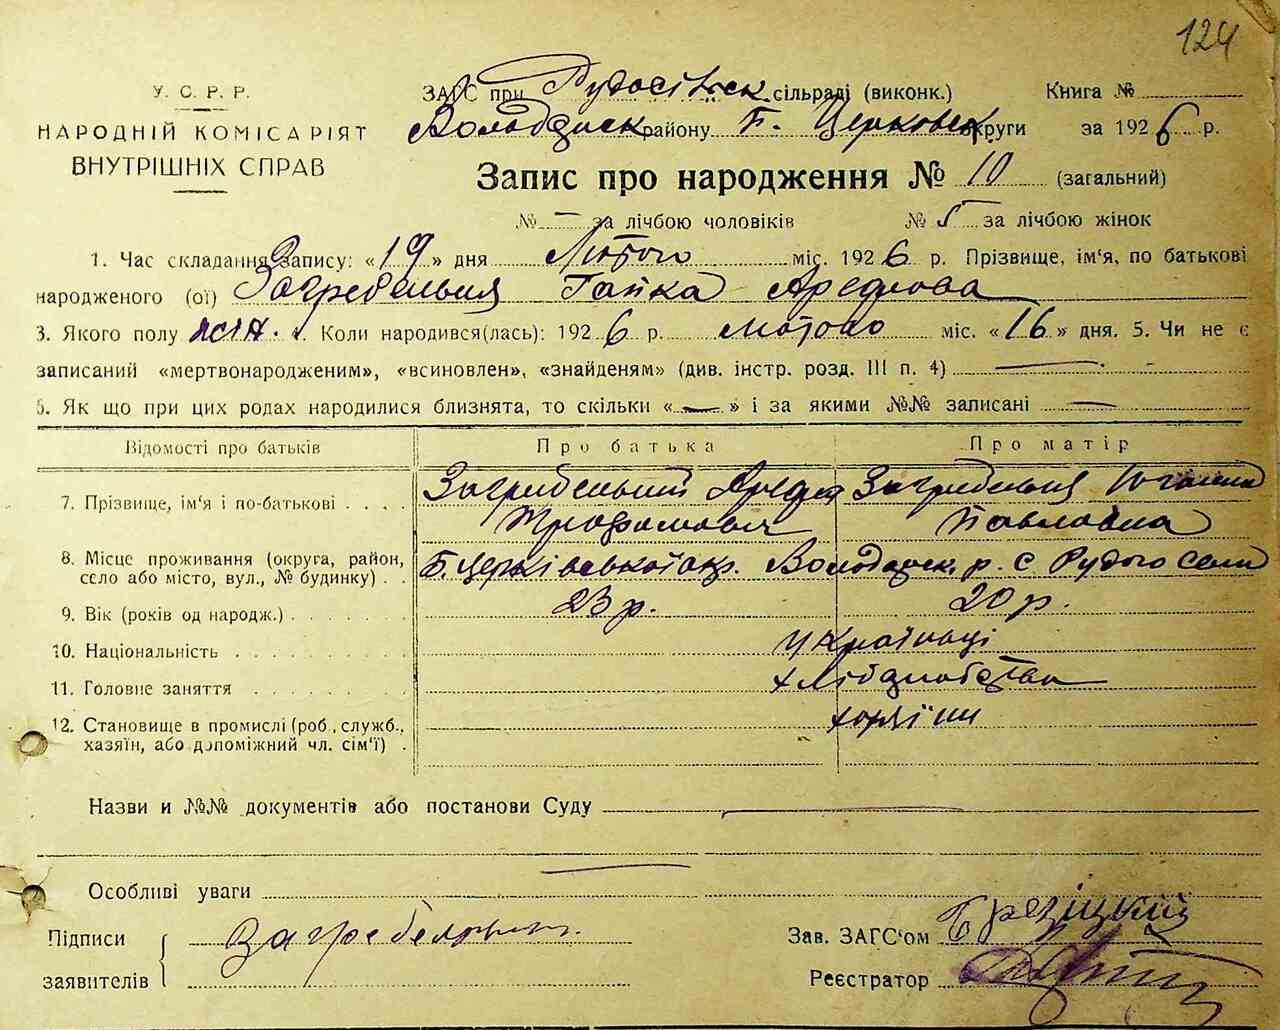 124
У. С. Р. Р.
НАРОДНІЙ КОМІСАРІЯТ
ВНУТРІШНІХ СПРАВ
ЗАГС при Рудосільск. сільраді (виконк.) Книга №
Володарск району Б. Церковск округи за 1926 р.
Запис про народження № 10 (загальний)
№ — за лічбою чоловіків № 5 за лічбою жінок
1. Час складання запису: «19» дня Лютого міс. 1926 р. Прізвище, ім'я, по батькові
народженого (ої) Загребельня Гапка
3. Якого полу жін. . Коли народився(лась): 1926 р. Лютого міс. «16» дня. 5. Чи не є
записаний «мертвонародженим», «всиновлен», «знайденям» (див. інстр. розд. III п. 4) —
6. Як що при цих родах народилися близнята, то скільки «—» і за якими №№ записані —
Відомості про батьків Про батька Про матір
7. Прізвище, ім'я і по-батькові . . . . Загребельний Загребельня
Трофимович Павловна
8. Місце проживання (округа, район, село або місто, вул., № будинку) . . Б. Церківської окр. Володарск. р. с Рудого Села
9. Вік (років од народж.) . . . . . . . 23 р. 20 р.
10. Національність . . . . . . . . українці
11. Головне заняття . . . . . . . . хліборобство
12. Становище в промислі (роб., служб., хазяїн, або допоміжний чл. сім'ї) .
Назви и №№ документів або постанови Суду —
Особливі уваги
Підписи заявителів
Зав. ЗАГС'ом
Реєстратор